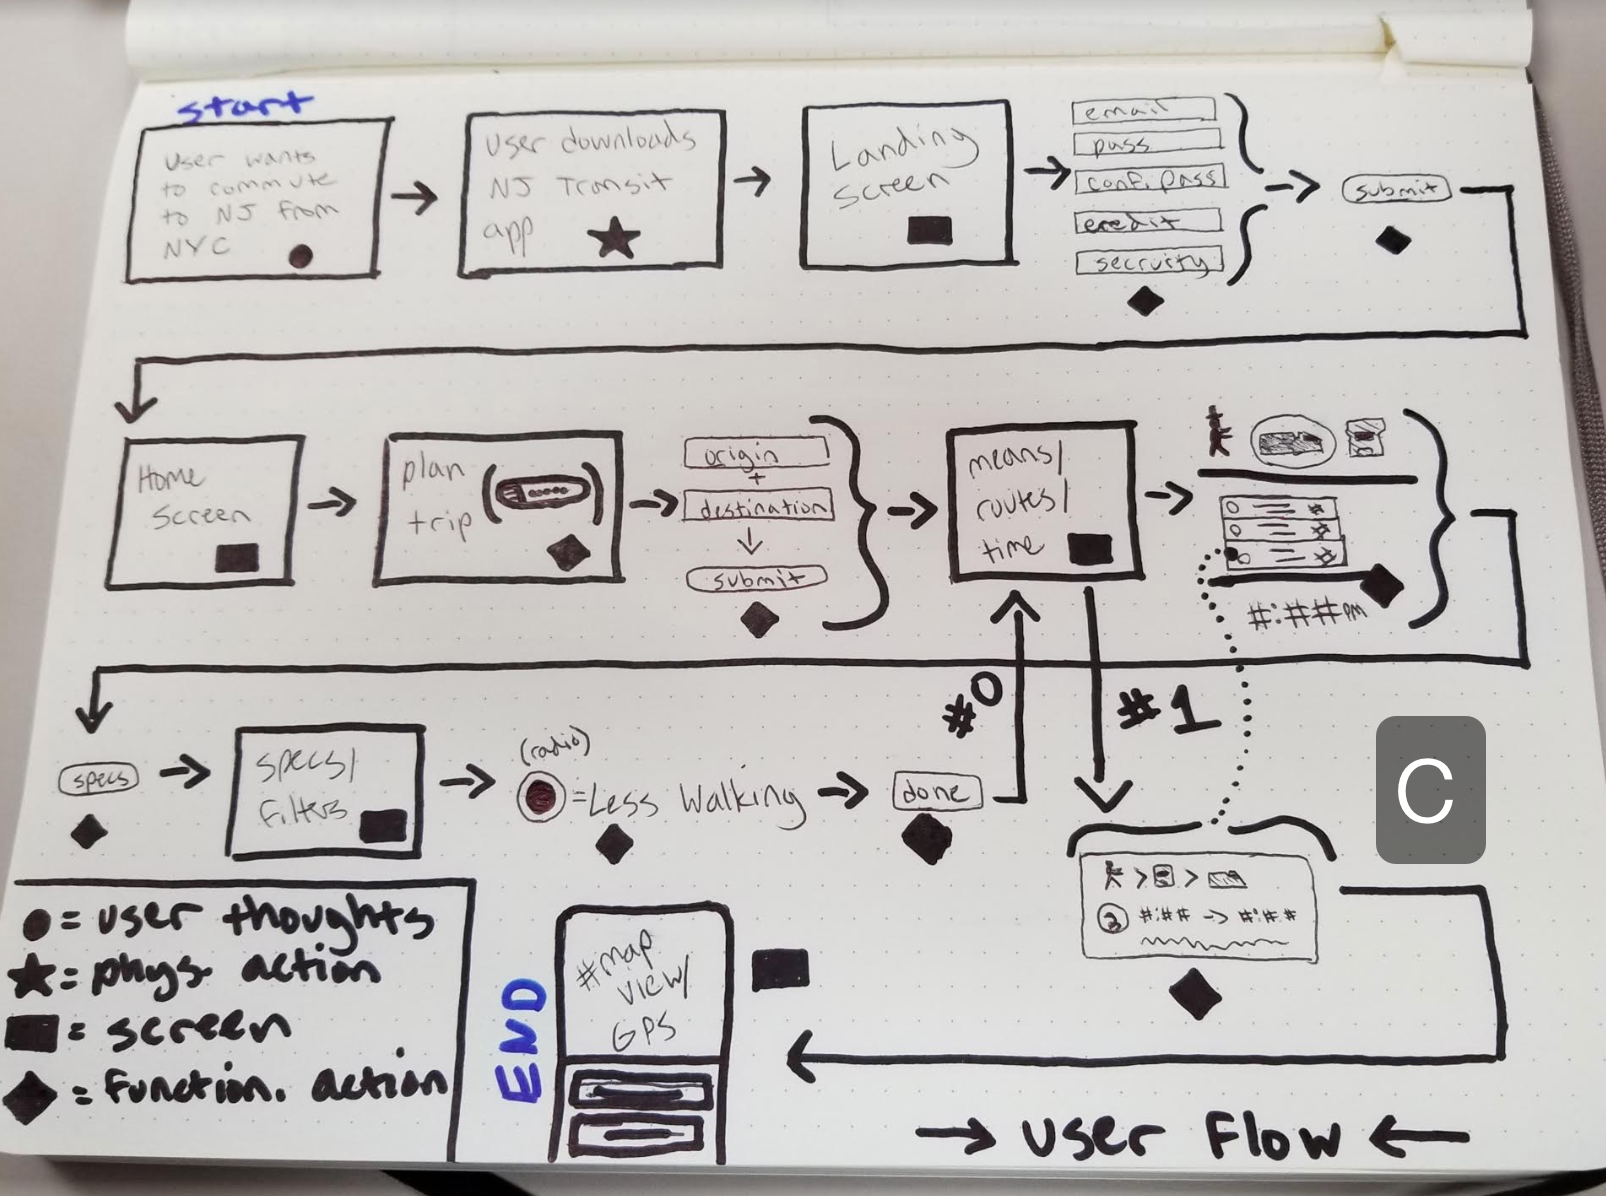 start
User wants
to commute
to NJ from
NYC
User downloads
NJ Transit
app
Landing
Screen
email
pass
conf. pass
credit
secruity
submit
Home
Screen
plan
trip
origin
+
destination
submit
means/
routes/
time
#:##PM
#0
#1
specs
specs/
filters
(radio)
= Less Walking
done
C
> >
2 #:## → #:##
= user thoughts
= phys. action
= screen
= function. action
END
#map
view/
GPS
→ User Flow ←